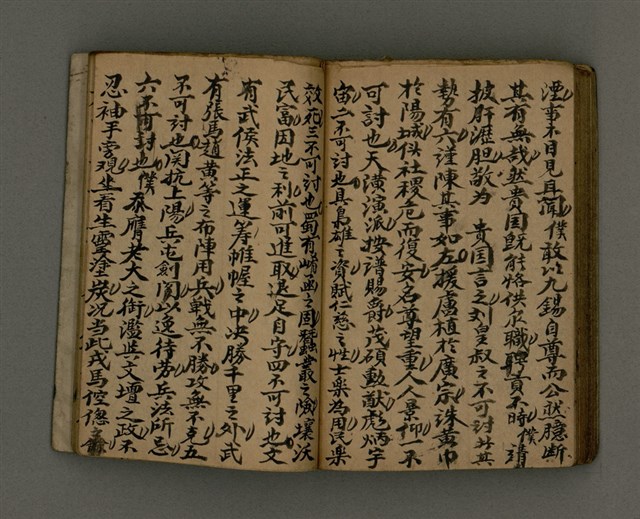 湮事不目見耳聞僕敢以九錫自尊而公狀臆斷
其有無哉然貴国既能恪供臣職聘貢不時僕請
披肝瀝胆敬為 貴国言之刘皇叔之不可討其
勢有六謹陳其事如左援盧植於廣宗誅黃巾
於陽城似社稷危而復安名尊望重人人景仰一不
可討也天潢演派按譜賜爵茂碩勳猷彪炳宇
宙二不可討也具梟雄之資賦仁慈之性士樂為用民樂
效死三不可討也蜀有崤函之固蠶叢之險壤沃
民富因地之利前可進取退足自守四不可討也文
有武侯法正之運筹帷幄之中决勝千里之外武
有張馬趙黃等之布陣用兵戰無不勝攻無不克五
不可討也関抗上陽兵屯劍閣以逸待劳兵法所忌
六不可討也僕忝膺老大之銜濫共文壇之政不
忍袖手旁观坐看生靈塗炭况当此戎馬倥傯